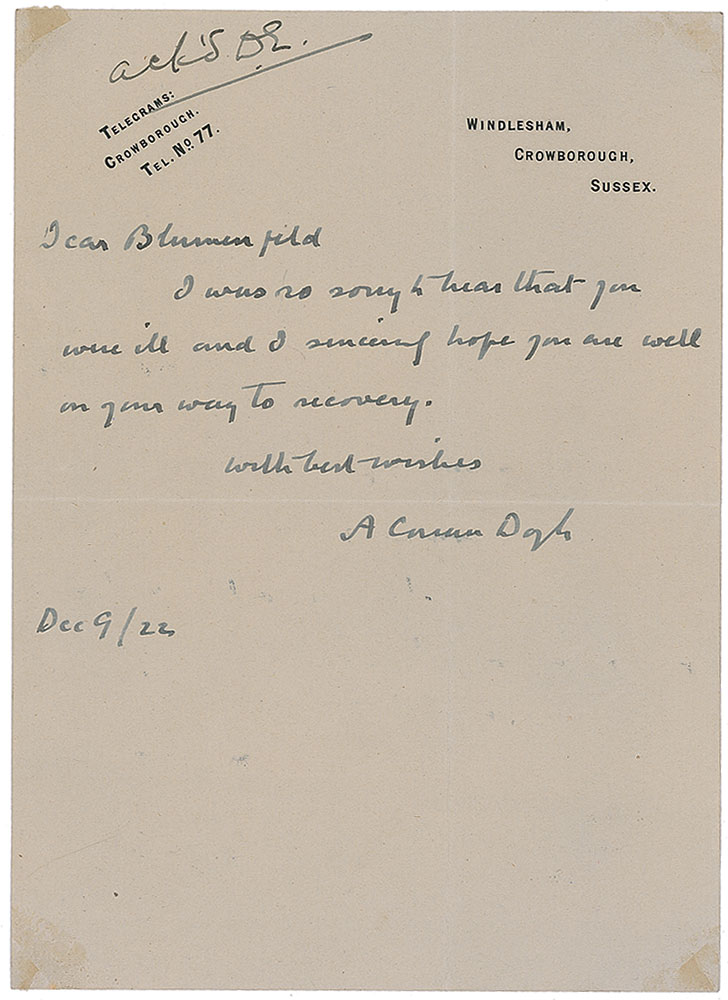 ack'd DE.
TELEGRAMS:
CROWBOROUGH.
TEL. No 77.
WINDLESHAM,
CROWBOROUGH,
SUSSEX.
Dear Blumenfeld
I was so sorry to hear that you
were ill and I sincerely hope you are well
on your way to recovery.
with best wishes
A Conan Doyle
Dec 9/22